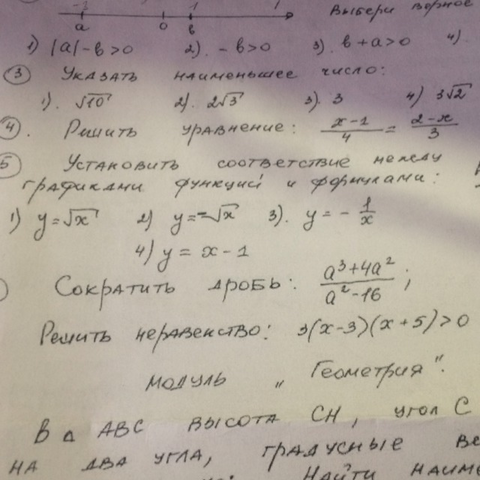 -3 -1 1
a 0 в Выбери верное
1) |a|-в>0 2). -в>0 3). в+a>0 4).
3 Указать наименьшее число:
1). √10 2). 2√3 3). 3 4) 3√2
4. Решить уравнение: x-1/4 = 2-x/3
5 Установить соответствие между
графиками функций и формулами:
1) y=√x 2) y=-√x 3). y = - 1/x
4) y = x - 1
Сократить дробь: a³+4a²/a²-16;
Решить неравенство: 3(x-3)(x+5)>0
модуль „Геометрия".
В △ ABC высота CH, угол C
на два угла, градусные
Найти